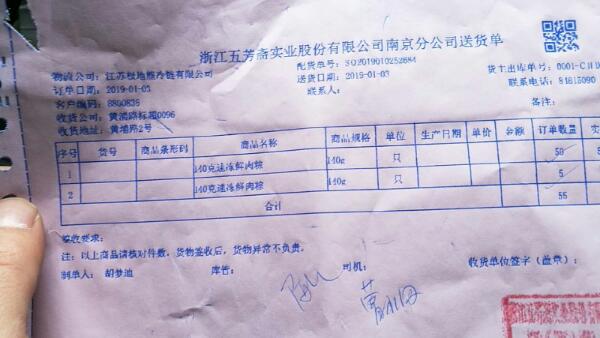 浙江五芳斋实业股份有限公司南京分公司送货单
物流公司：江苏极地熊冷链有限公司
配货单号：SO2019010252684
货主出库单号：0001-CJH
订单日期：2019-01-03
送货日期：2019-01-03
联系电话：84815090
客户编码：8800836
联系人：
收货公司：黄浦路标超0096
备注：
收货地址：黄埔路2号
序号 货号 商品条形码 商品名称 商品规格 单位 生产日期 单价 金额 订单数量
1 140克速冻鲜肉粽 140g 只 50
2 140克速冻鲜肉粽 140g 只 5
合计 55
签收要求：
注：以上商品请核对件数，货物签收后，货物异常不负责。
制单人：胡梦迪 库管： 司机： 收货单位签字（盖章）：